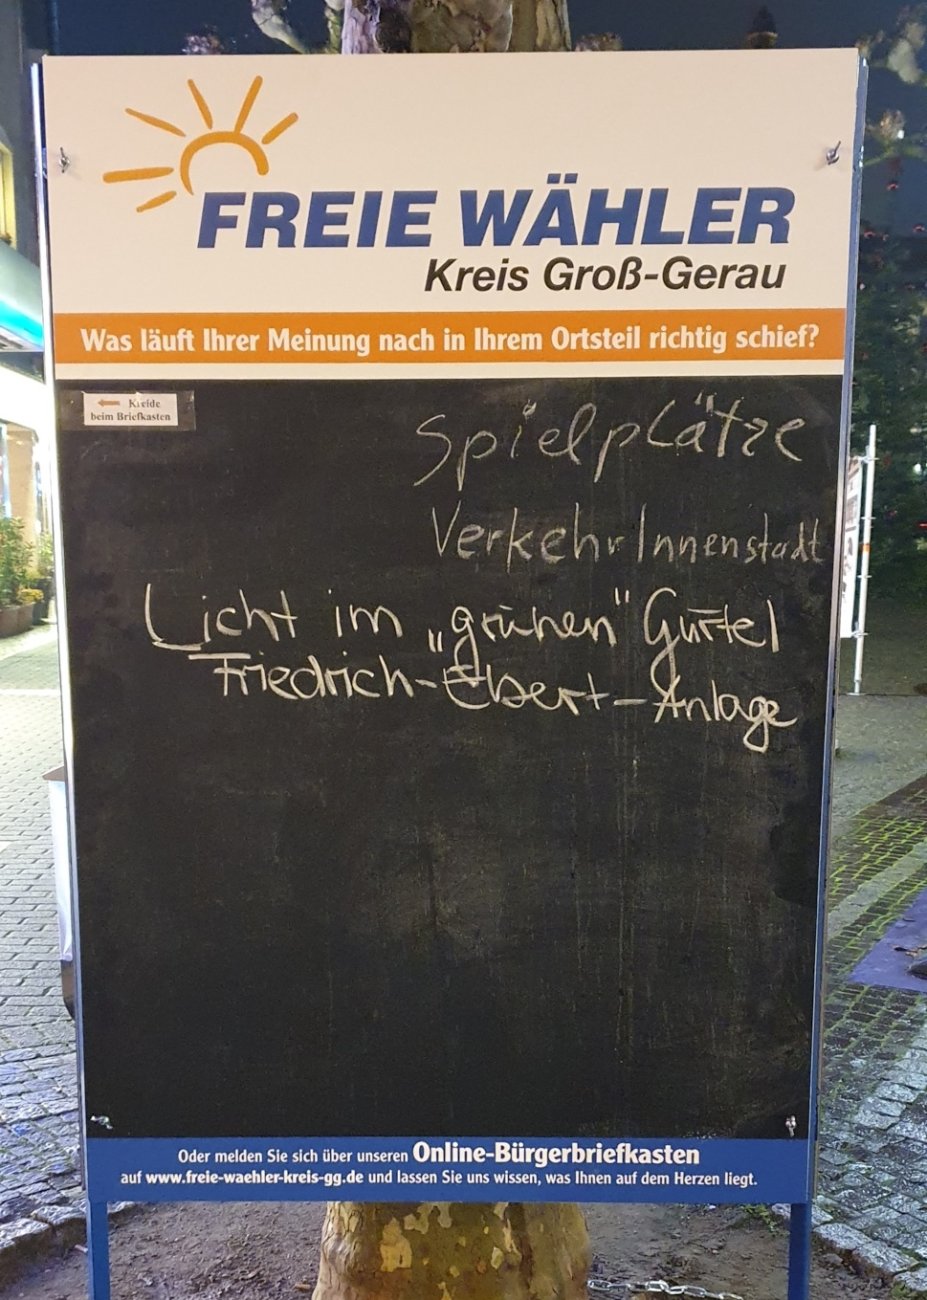 FREIE WÄHLER
Kreis Groß-Gerau
Was läuft Ihrer Meinung nach in Ihrem Ortsteil richtig schief?
← Kreide
beim Briefkasten
Spielplätze
Verkehr Innenstadt
Licht im „grünen" Gürtel
Friedrich-Ebert-Anlage
Oder melden Sie sich über unseren Online-Bürgerbriefkasten
auf www.freie-waehler-kreis-gg.de und lassen Sie uns wissen, was Ihnen auf dem Herzen liegt.